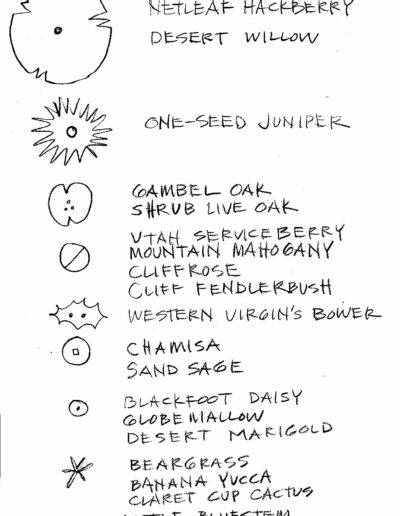 NETLEAF HACKBERRY
DESERT WILLOW
ONE-SEED JUNIPER
GAMBEL OAK
SHRUB LIVE OAK
UTAH SERVICEBERRY
MOUNTAIN MAHOGANY
CLIFFROSE
CLIFF FENDLERBUSH
WESTERN VIRGIN'S BOWER
CHAMISA
SAND SAGE
BLACKFOOT DAISY
GLOBEMALLOW
DESERT MARIGOLD
BEARGRASS
BANANA YUCCA
CLARET CUP CACTUS
LITTLE BLUESTEM